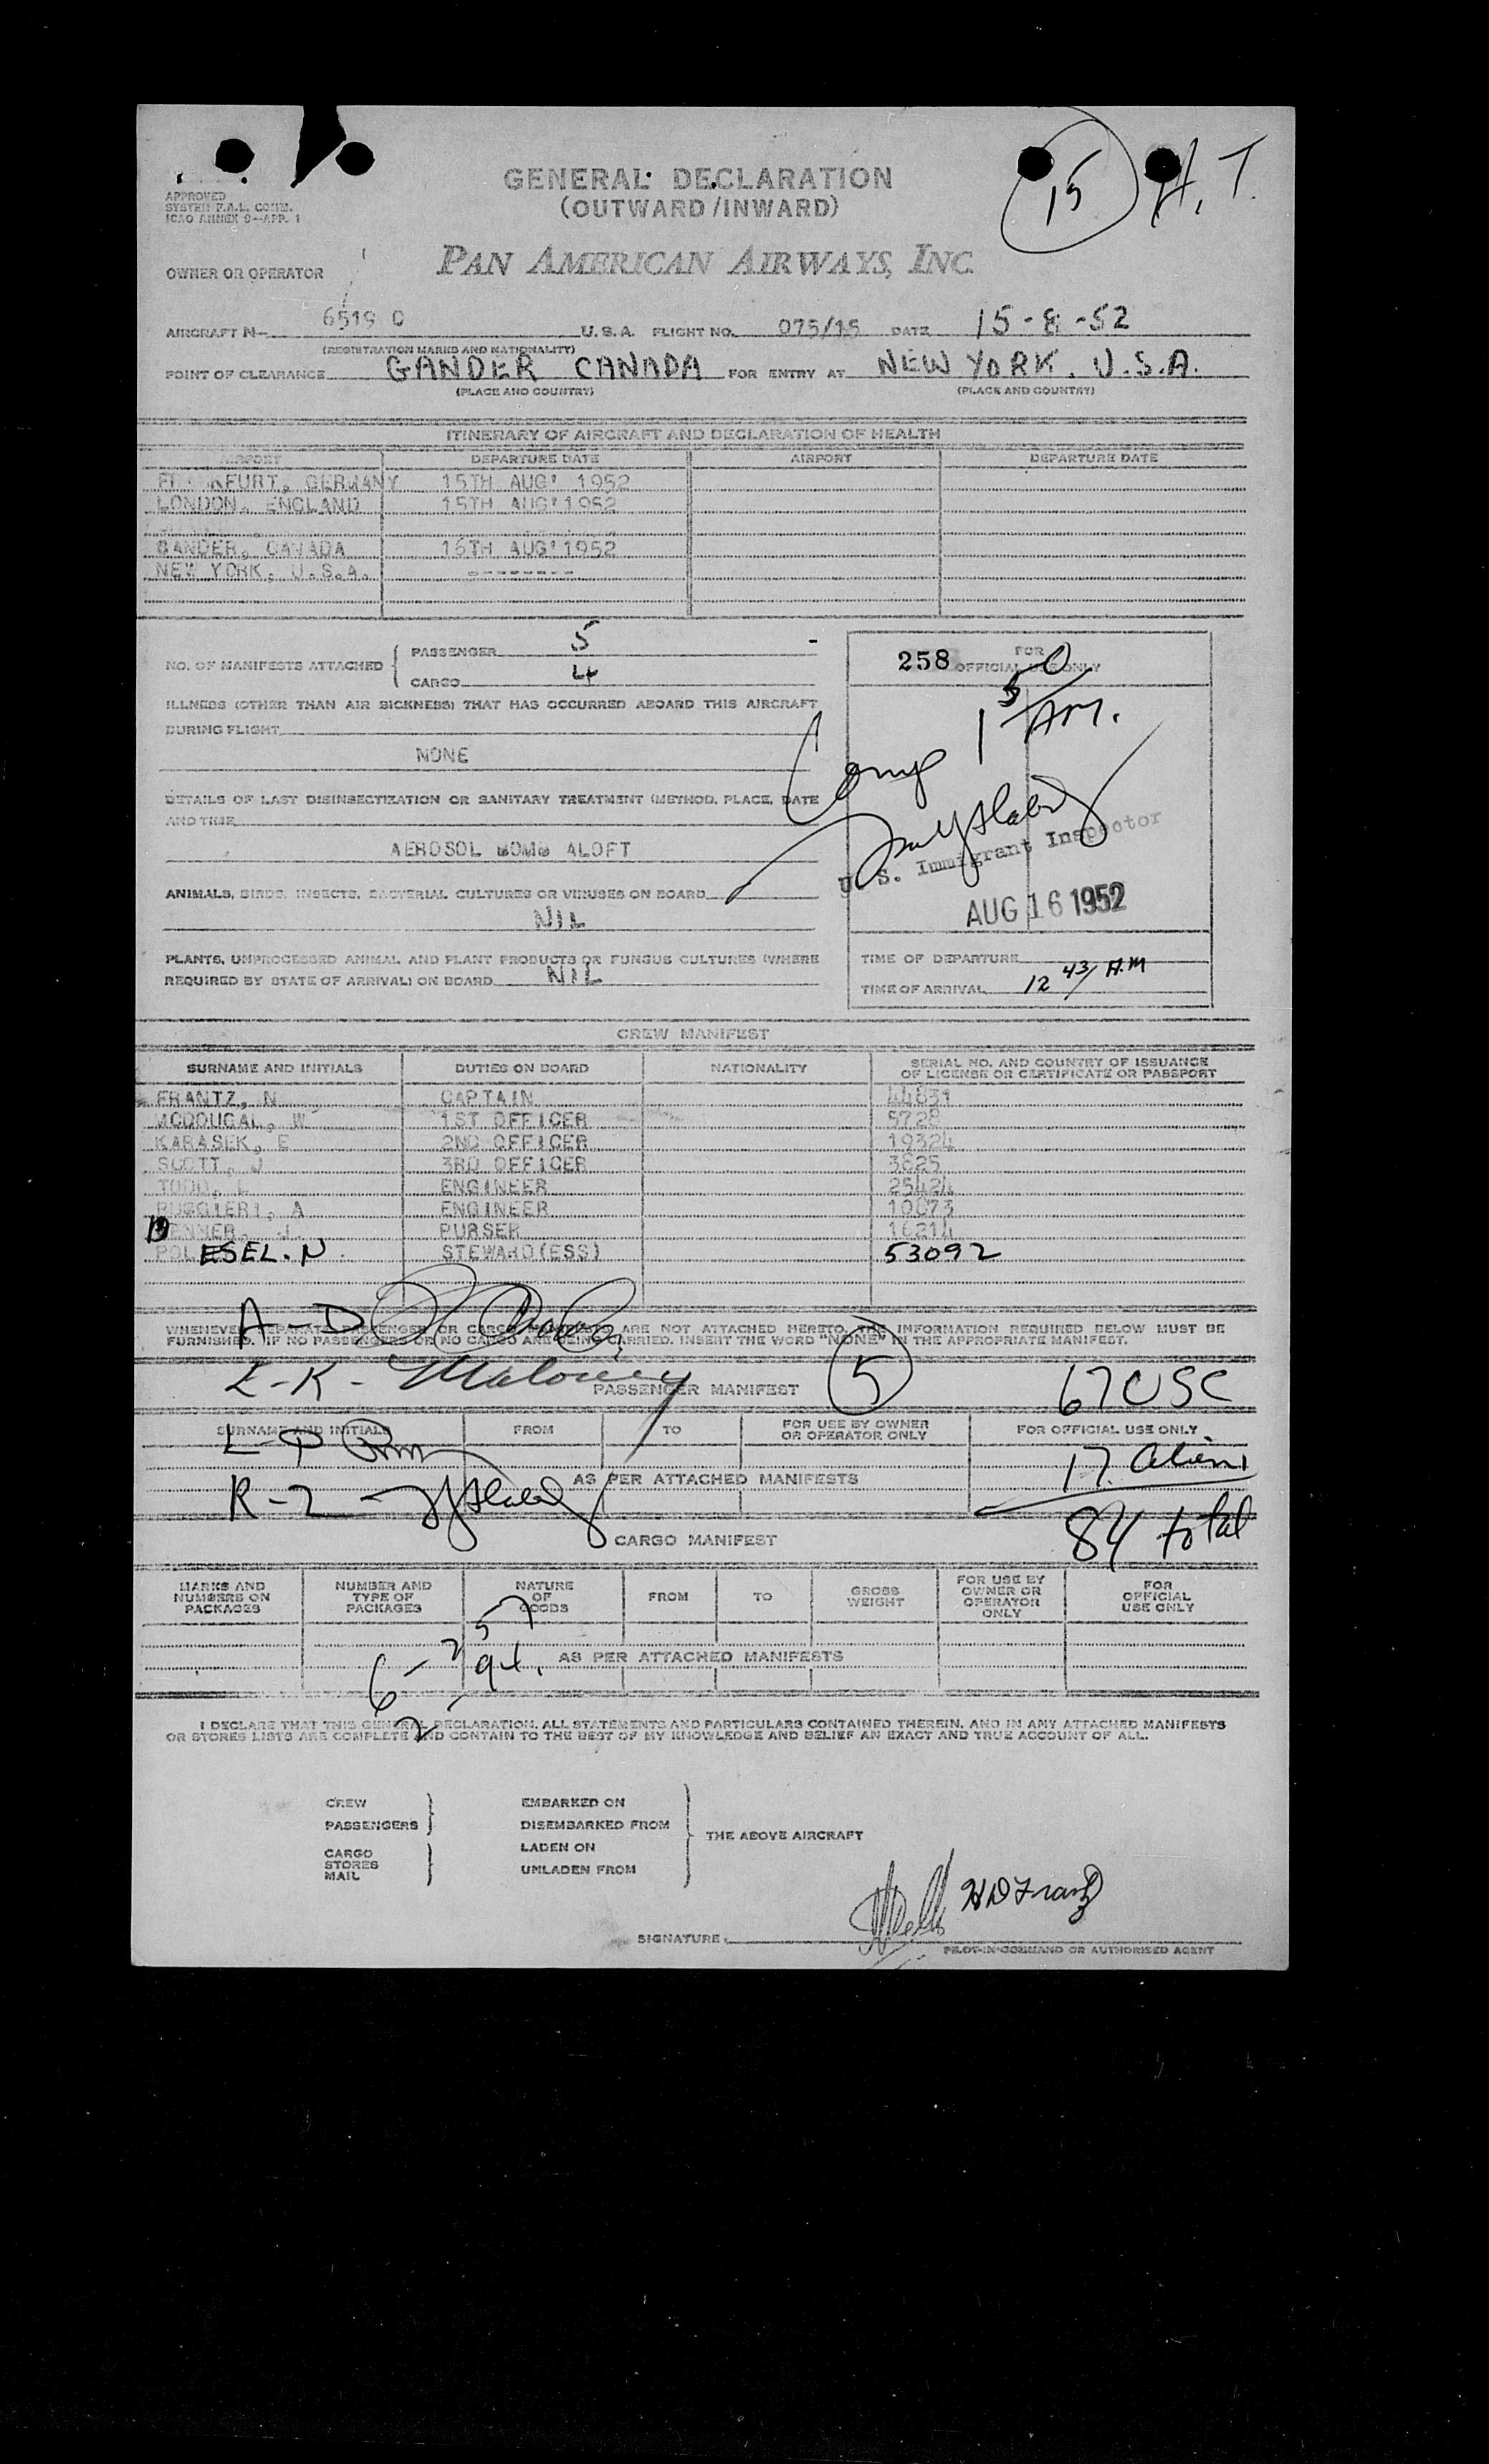 15 H. T.
APPROVED
SYSTEM F.A.L. COMM.
ICAO ANNEX 9--APP. 1
GENERAL DECLARATION
(OUTWARD/INWARD)
OWNER OR OPERATOR PAN AMERICAN AIRWAYS, INC.
AIRCRAFT N- 6519 C U.S.A. FLIGHT NO. 075/15 DATE 15-8-52
(REGISTRATION MARKS AND NATIONALITY)
POINT OF CLEARANCE GANDER CANADA FOR ENTRY AT NEW YORK. U.S.A.
(PLACE AND COUNTRY) (PLACE AND COUNTRY)
ITINERARY OF AIRCRAFT AND DECLARATION OF HEALTH
AIRPORT DEPARTURE DATE AIRPORT DEPARTURE DATE
FRANKFURT, GERMANY 15TH AUG' 1952
LONDON, ENGLAND 15TH AUG'1952
GANDER, CANADA 16TH AUG'1952
NEW YORK, U.S.A. --------
NO. OF MANIFESTS ATTACHED { PASSENGER 5 -
CARGO 4
258 FOR OFFICIAL USE ONLY
ILLNESS (OTHER THAN AIR SICKNESS) THAT HAS OCCURRED ABOARD THIS AIRCRAFT
DURING FLIGHT
NONE
Comp 1 50 AM.
DETAILS OF LAST DISINSECTIZATION OR SANITARY TREATMENT (METHOD, PLACE, DATE
AND TIME
AEROSOL BOMB ALOFT
U. S. Immigrant Inspector
ANIMALS, BIRDS, INSECTS, BACTERIAL CULTURES OR VIRUSES ON BOARD
NIL
AUG 16 1952
PLANTS, UNPROCESSED ANIMAL AND PLANT PRODUCTS OR FUNGUS CULTURES (WHERE
REQUIRED BY STATE OF ARRIVAL) ON BOARD NIL
TIME OF DEPARTURE
TIME OF ARRIVAL 12 43/ A.M
CREW MANIFEST
SURNAME AND INITIALS DUTIES ON BOARD NATIONALITY SERIAL NO. AND COUNTRY OF ISSUANCE
OF LICENSE OR CERTIFICATE OR PASSPORT
FRANTZ, N CAPTAIN 44831
MCDOUGAL, W 1ST OFFICER 5728
KARASEK, E 2ND OFFICER 19324
SCOTT, J 3RD OFFICER 3825
TODD, L ENGINEER 25424
RUGGIERI, A ENGINEER 10873
DENNER, J. PURSER 16214
POLESEL. N. STEWARD(ESS) 53092
A-D
WHENEVER SEPARATE PASSENGER OR CARGO MANIFESTS ARE NOT ATTACHED HERETO, THE INFORMATION REQUIRED BELOW MUST BE
FURNISHED. IF NO PASSENGERS OR NO CARGO ARE BEING CARRIED, INSERT THE WORD "NONE" IN THE APPROPRIATE MANIFEST.
E-K- Maloney PASSENGER MANIFEST 5 67 USC
SURNAME AND INITIALS FROM TO FOR USE BY OWNER
OR OPERATOR ONLY FOR OFFICIAL USE ONLY
L-P
17 Aliens
AS PER ATTACHED MANIFESTS
R-Z
84 total
CARGO MANIFEST
MARKS AND
NUMBERS ON
PACKAGES NUMBER AND
TYPE OF
PACKAGES NATURE
OF
GOODS FROM TO GROSS
WEIGHT FOR USE BY
OWNER OR
OPERATOR
ONLY FOR
OFFICIAL
USE ONLY
AS PER ATTACHED MANIFESTS
I DECLARE THAT THIS GENERAL DECLARATION, ALL STATEMENTS AND PARTICULARS CONTAINED THEREIN, AND IN ANY ATTACHED MANIFESTS
OR STORES LISTS ARE COMPLETE AND CONTAIN TO THE BEST OF MY KNOWLEDGE AND BELIEF AN EXACT AND TRUE ACCOUNT OF ALL.
CREW
PASSENGERS
CARGO
STORES
MAIL
EMBARKED ON
DISEMBARKED FROM
LADEN ON
UNLADEN FROM
THE ABOVE AIRCRAFT
SIGNATURE HD Frantz
PILOT-IN-COMMAND OR AUTHORISED AGENT